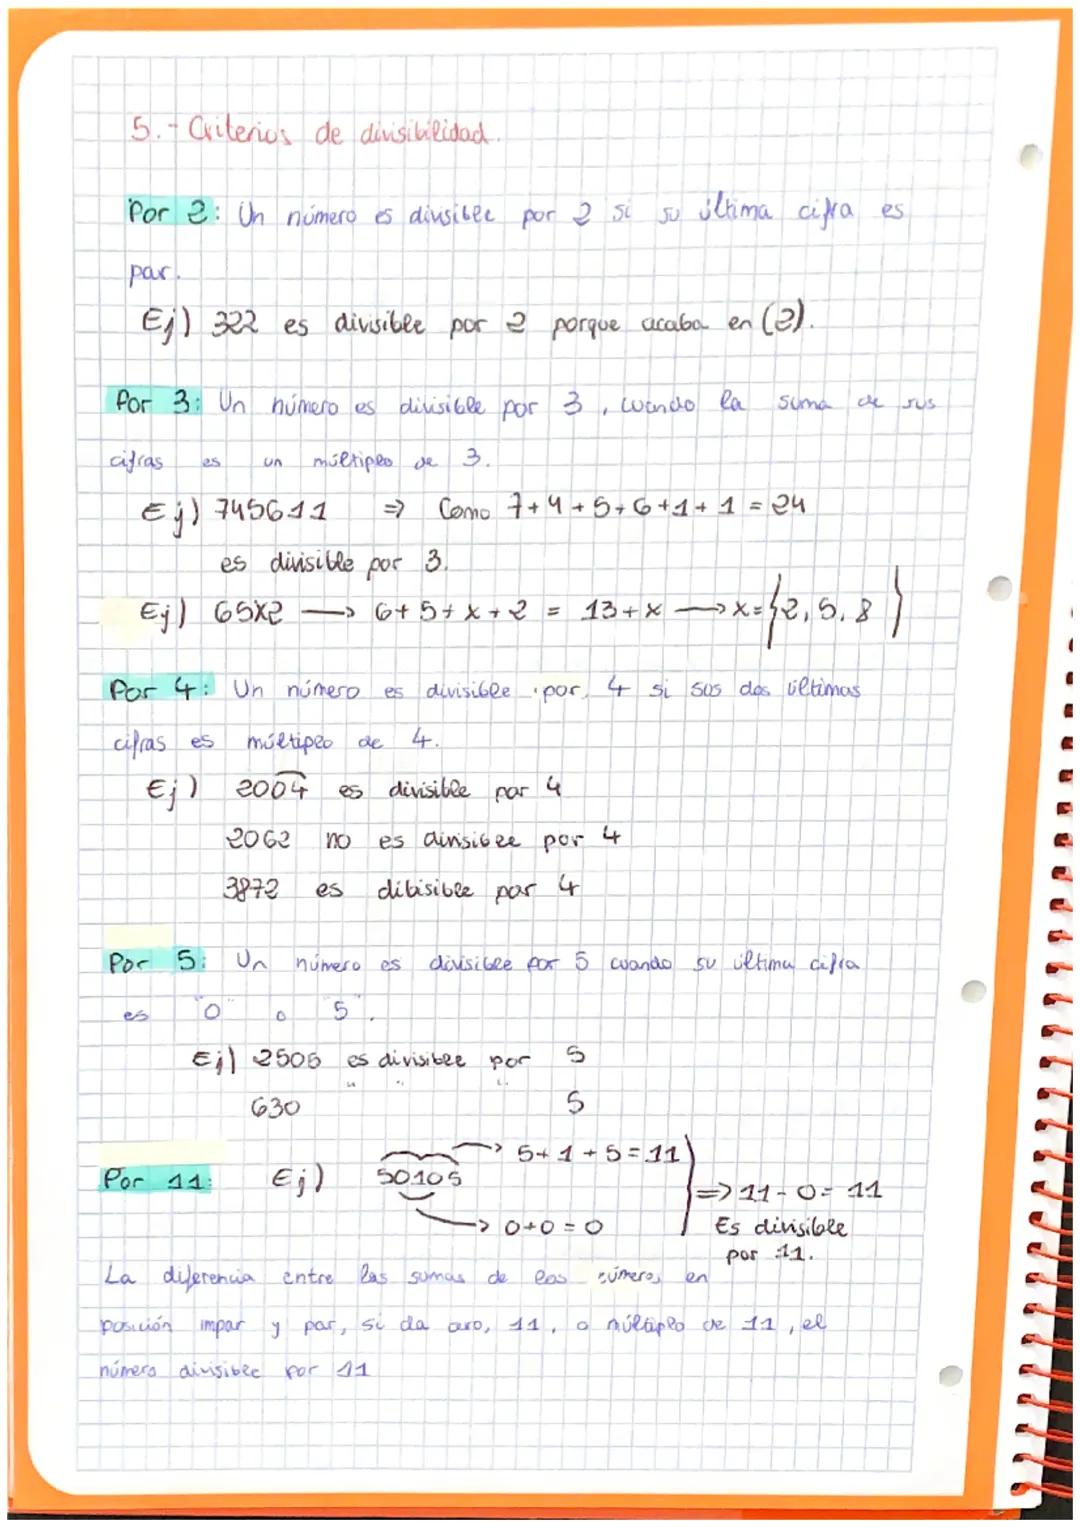 5.- Criterios de divisibilidad.
Por 2: Un número es divisible por 2 si su última cifra es
par.
Ej) 322 es divisible por 2 porque acaba en (2).
Por 3: Un número es divisible por 3, cuando la suma de sus
cifras es un múltiplo de 3.
Ej) 745611 => Como 7+4+5+6+1+1 = 24
es divisible por 3.
Ej) 65X2 → 6+5+x+2 = 13+x → x={2,5,8}
Por 4: Un número es divisible por 4 si sus dos últimas
cifras es múltiplo de 4.
Ej) 2004 es divisible por 4
2062 no es divisible por 4
3872 es dibisible por 4
Por 5: Un número es divisible por 5 cuando su última cifra
es "0" o "5".
Ej) 2505 es divisible por 5
630 " " " 5
Por 11: Ej) 50105 → 5+1+5=11
→ 0+0=0
=> 11-0= 11
Es divisible
por 11.
La diferencia entre las sumas de los números en
posición impar y par, si da cero, 11, o múltiplo de 11, el
número divisible por 11